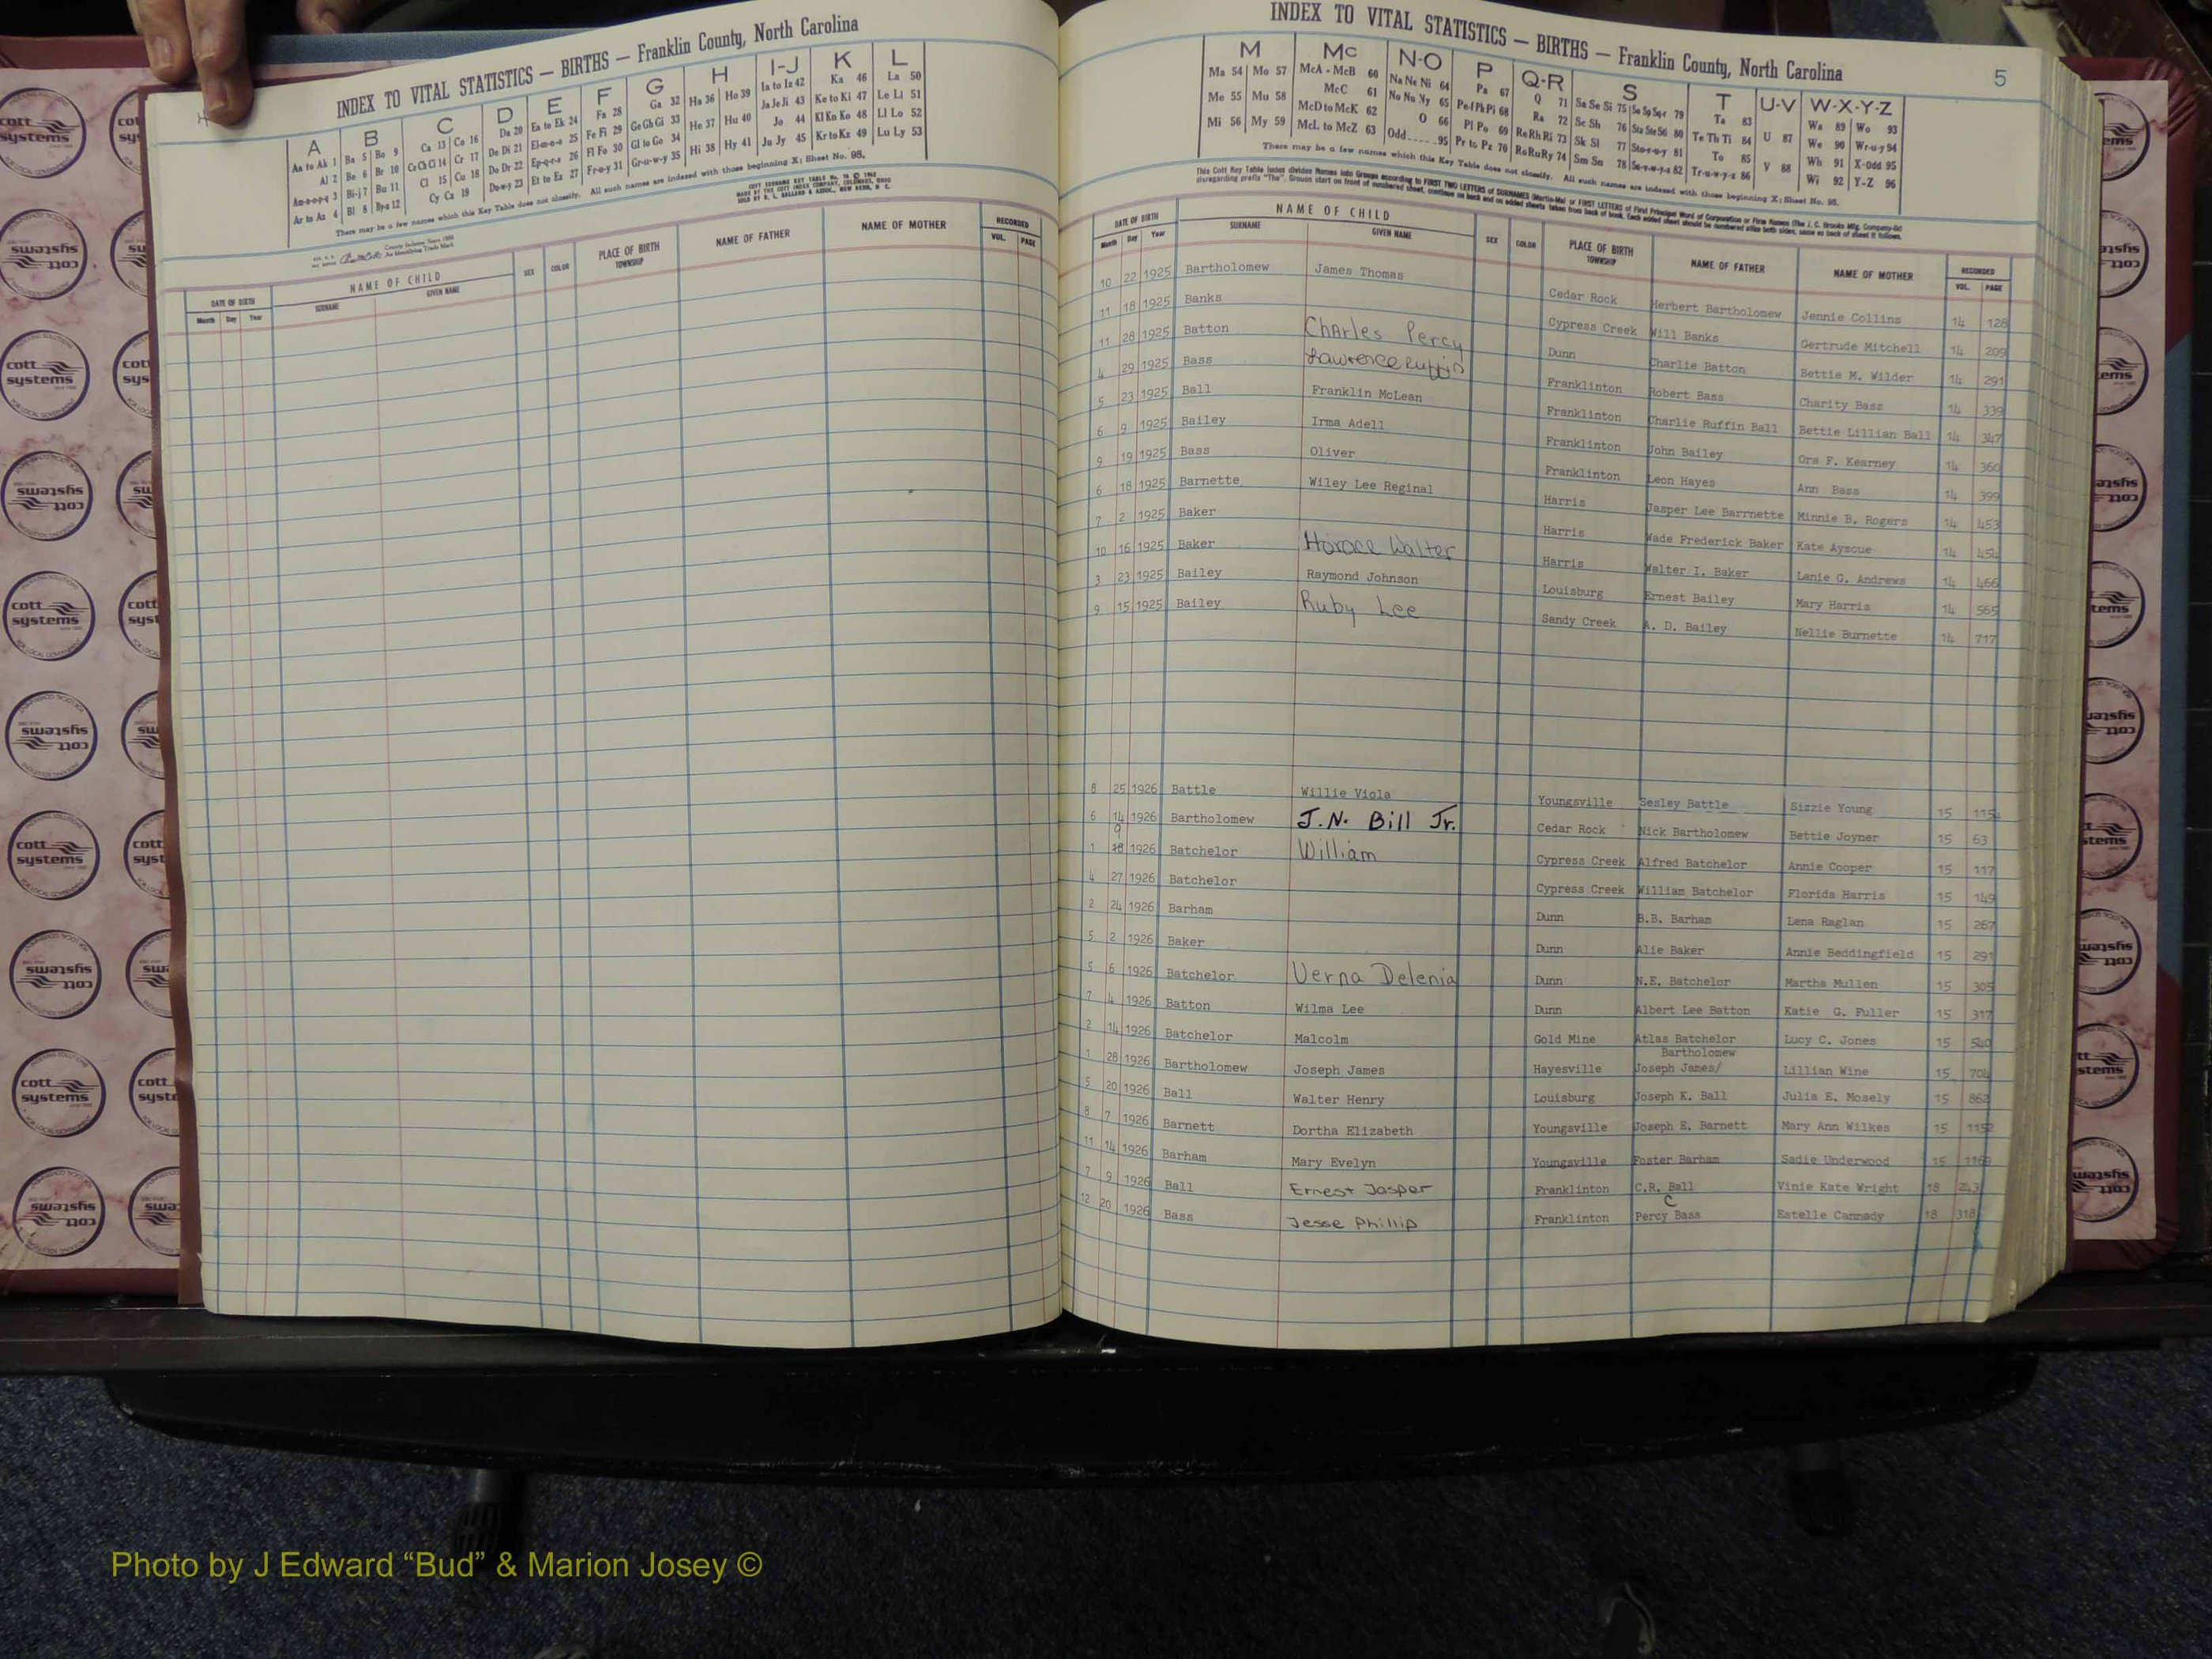 INDEX TO VITAL STATISTICS — BIRTHS — Franklin County, North Carolina
A B C D E F G H I-J K L
Aa to Ak 1 Ba 5 Bo 9 Ca 13 Co 16 Da 20 Ea to Ek 24 Fa 28 Ga 32 Ha 36 Ho 39 Ia to Iz 42 Ka 46 La 50
Al 2 Be 6 Br 10 Ce Ch Ci 14 Cr 17 De Di 21 El-m-n-o 25 Fe Fi 29 Ge Gh Gi 33 He 37 Hu 40 Ja Je Ji 43 Ke to Ki 47 Le Li 51
Am-n-o-p-q 3 Bi-j 7 Bu 11 Cl 15 Cu 18 Do Dr 22 Ep-q-r-s 26 Fl Fo 30 Gl to Go 34 Hi 38 Hy 41 Jo 44 Kl Kn Ko 48 Ll Lo 52
Ar to Az 4 Bl 8 By-z 12 Cy Cz 19 Du-w-y 23 Et to Ez 27 Fr-u-y 31 Gr-u-w-y 35 Ju Jy 45 Kr to Kz 49 Lu Ly 53
There may be a few names which this Key Table does not classify. All such names are indexed with those beginning X; Sheet No. 95.
DATE OF BIRTH NAME OF CHILD SEX COLOR PLACE OF BIRTH NAME OF FATHER NAME OF MOTHER RECORDED
Month Day Year SURNAME GIVEN NAME TOWNSHIP VOL. PAGE
INDEX TO VITAL STATISTICS — BIRTHS — Franklin County, North Carolina 5
M Mc N-O P Q-R S T U-V W-X-Y-Z
Ma 54 Mo 57 McA - McB 60 Na Ne Ni 64 Pa 67 Q 71 Sa Se Si 75 Sa Sp Sq-r 79 Ta 83 Wa 89 Wo 93
Me 55 Mu 58 McC 61 No Nu Ny 65 Pe-f Ph Pi 68 Ra 72 Sc Sh 76 Sta Ste Sti 80 Te Th Ti 84 U 87 We 90 Wr-u-y 94
Mi 56 My 59 McD to McK 62 O 66 Pl Po 69 Re Rh Ri 73 Sk Sl 77 Sto-r-u-y 81 To 85 Wh 91 X-Odd 95
McL to McZ 63 Odd 95 Pr to Pz 70 Ro Ru Ry 74 Sm Sn 78 Su-v-w-y-z 82 Tr-u-w-y-z 86 V 88 Wi 92 Y-Z 96
There may be a few names which this Key Table does not classify. All such names are indexed with those beginning X; Sheet No. 95.
DATE OF BIRTH NAME OF CHILD SEX COLOR PLACE OF BIRTH NAME OF FATHER NAME OF MOTHER RECORDED
Month Day Year SURNAME GIVEN NAME TOWNSHIP VOL. PAGE
10 22 1925 Bartholomew James Thomas Cedar Rock Herbert Bartholomew Jennie Collins 14 128
11 18 1925 Banks Cypress Creek Will Banks Gertrude Mitchell 14 209
11 28 1925 Batton Charles Percy Dunn Charlie Batton Bettie M. Wilder 14 291
4 29 1925 Bass Lawrence Ruffin Franklinton Robert Bass Charity Bass 14 339
5 23 1925 Ball Franklin McLean Franklinton Charlie Ruffin Ball Bettie Lillian Ball 14 347
6 9 1925 Bailey Irma Adell Franklinton John Bailey Ora F. Kearney 14 360
9 19 1925 Bass Oliver Franklinton Leon Hayes Ann Bass 14 399
6 18 1925 Barnette Wiley Lee Reginal Harris Jasper Lee Barrnette Minnie B. Rogers 14 453
7 2 1925 Baker Harris Wade Frederick Baker Kate Ayscue 14 454
10 16 1925 Baker Horace Walter Harris Walter I. Baker Lanie G. Andrews 14 466
3 23 1925 Bailey Raymond Johnson Louisburg Ernest Bailey Mary Harris 14 565
9 15 1925 Bailey Ruby Lee Sandy Creek A. D. Bailey Nellie Burnette 14 717
8 25 1926 Battle Willie Viola Youngsville Sesley Battle Sizzie Young 15
6 14 1926 Bartholomew J.N. Bill Jr. Cedar Rock Nick Bartholomew Bettie Joyner 15 63
1 9 1926 Batchelor William Cypress Creek Alfred Batchelor Annie Cooper 15 117
4 27 1926 Batchelor Cypress Creek William Batchelor Florida Harris 15 149
2 24 1926 Barham Dunn B.B. Barham Lena Raglan 15 267
5 2 1926 Baker Dunn Alie Baker Annie Beddingfield 15 291
5 6 1926 Batchelor Verna Delenia Dunn N.E. Batchelor Martha Mullen 15 305
7 4 1926 Batton Wilma Lee Dunn Albert Lee Batton Katie G. Fuller 15 317
2 14 1926 Batchelor Malcolm Gold Mine Atlas Batchelor Lucy C. Jones 15 540
Bartholomew
1 28 1926 Bartholomew Joseph James Hayesville Joseph James/ Lillian Wine 15 704
5 20 1926 Ball Walter Henry Louisburg Joseph K. Ball Julia E. Mosely 15 862
8 7 1926 Barnett Dortha Elizabeth Youngsville Joseph E. Barnett Mary Ann Wilkes 15 1152
11 14 1926 Barham Mary Evelyn Youngsville Foster Barham Sadie Underwood 15
7 9 1926 Ball Ernest Jasper Franklinton C.R. Ball Vinie Kate Wright 18 243
C
12 20 1926 Bass Jesse Phillip Franklinton Percy Bass Estelle Cannady 18 318
cott systems
Photo by J Edward “Bud” & Marion Josey ©